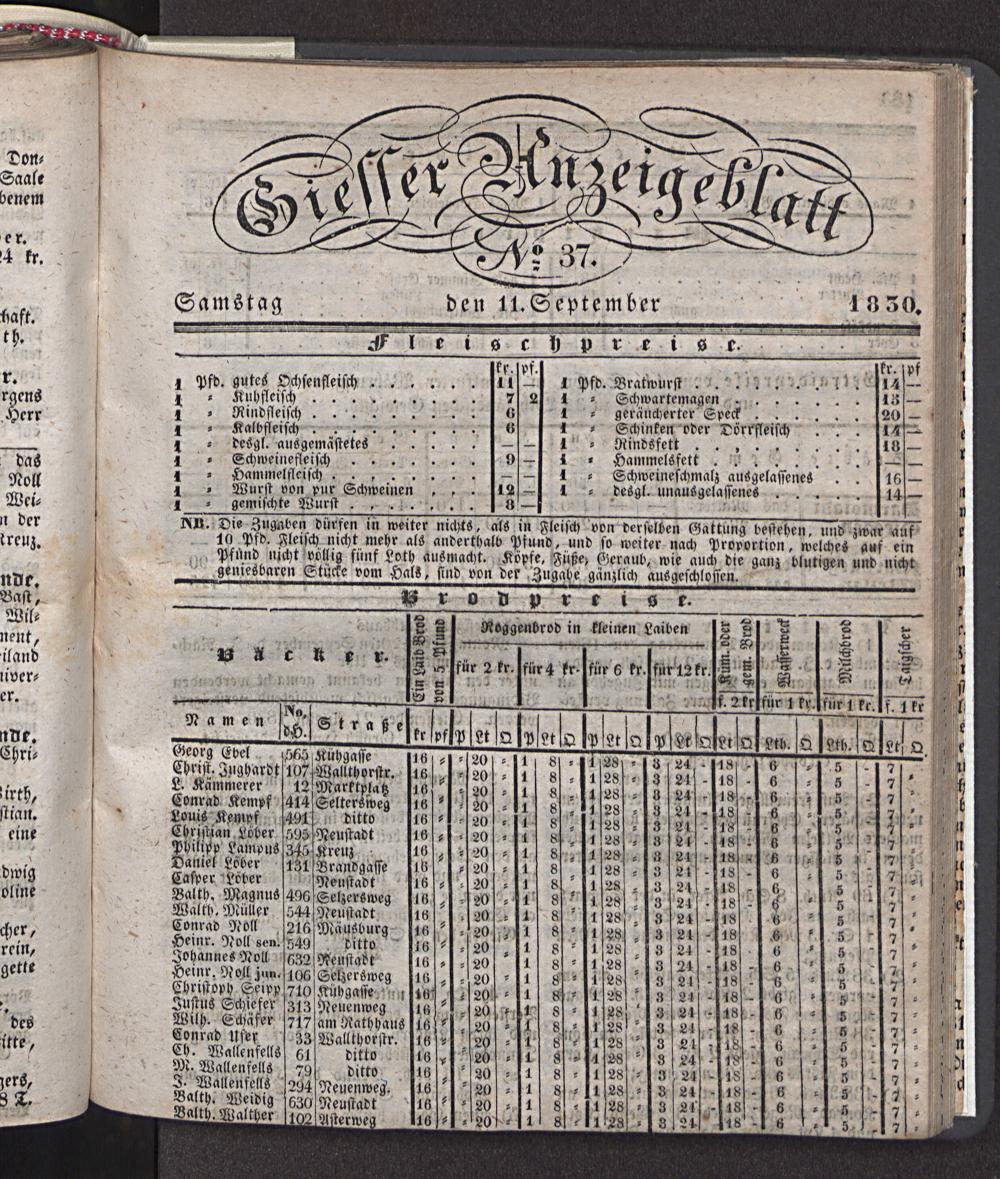 Don⸗
Saale
benem
er.
24 kr.
haft.
th.
r.
rgens
Herr
das
Noll
Wei⸗
n der
Kreuz.
nde.
Bast,
Wil⸗
ment,
eiland
niver⸗
er.
nde.
Chri⸗
Birth,
stian.
eine
dwig
oline
cher,
rein,
gette
des
itte,
gers,
8 T.
Giesser Anzeigeblatt
No. 37.
Samstag den 11. September 1830.
Fleischpreise.
kr. pf. kr. pf
1 Pfd. gutes Ochsenfleisch . . . . 11 — 1 Pfd. Bratwurst . . . . . 14 —
1 ⸗ Kuhfleisch . . . . . . 7 2 1 ⸗ Schwartemagen . . . . 13 —
1 ⸗ Rindfleisch . . . . . . 6 1 ⸗ geräucherter Speck . . . . 20 —
1 ⸗ Kalbfleisch . . . . . . 6 1 ⸗ Schinken oder Dörrfleisch . . . 14 —
1 ⸗ desgl. ausgemästetes . . . . — — 1 ⸗ Rindsfett . . . . . . 18 —
1 ⸗ Schweinefleisch . . . . . 9 — 1 ⸗ Hammelsfett . . . . . — —
1 ⸗ Hammelfleisch . . . . . — — 1 ⸗ Schweineschmalz ausgelassenes . . 16 —
1 ⸗ Wurst von pur Schweinen . . . 12 — 1 ⸗ desgl. unausgelassenes . . . 14 —
1 ⸗ gemischte Wurst . . . . . 8 —
NB. Die Zugaben dürfen in weiter nichts, als in Fleisch von derselben Gattung bestehen, und zwar auf
10 Pfd. Fleisch nicht mehr als anderthalb Pfund, und so weiter nach Proportion, welches auf ein
Pfund nicht völlig fünf Loth ausmacht. Köpfe, Füße, Geraub, wie auch die ganz blutigen und nicht
geniesbaren Stücke vom Hals, sind von der Zugabe gänzlich ausgeschlossen.
Brodpreise.
Bäcker.
Ein Laib Brod von 5 Pfund
Roggenbrod in kleinen Laiben
für 2 kr. für 4 kr. für 6 kr. für 12 kr.
Küm. oder gem. Brod f. 2 kr
Wasserweck für 1 kr.
Milchbrod für 1 kr.
Taigscher f. 1 kr
Namen No. d.H. Straße kr pf P Lt Q P Lt Q P Lt Q P Lt Q Lt Q Lth. Q Lth. Q Lt Q
Georg Ebel 565 Kühgasse 16 ⸗ ⸗ 20 ⸗ 1 8 ⸗ 1 28 ⸗ 3 24 - 18 - 6 ⸗ 5 - 7 ⸗
Christ. Jughardt 107 Wallthorstr. 16 ⸗ ⸗ 20 ⸗ 1 8 ⸗ 1 28 ⸗ 3 24 - 18 - 6 ⸗ 5 - 7 ⸗
L. Kämmerer 12 Marktplatz 16 ⸗ ⸗ 20 ⸗ 1 8 ⸗ 1 28 ⸗ 3 24 - 18 - 6 ⸗ 5 - 7 ⸗
Conrad Kempf 414 Seltersweg 16 ⸗ ⸗ 20 ⸗ 1 8 ⸗ 1 28 ⸗ 3 24 - 18 - 6 ⸗ 5 - 7 ⸗
Louis Kempf 491 ditto 16 ⸗ ⸗ 20 ⸗ 1 8 ⸗ 1 28 ⸗ 3 24 - 18 - 6 ⸗ 5 - 7 ⸗
Christian Löber 595 Neustadt 16 ⸗ ⸗ 20 ⸗ 1 8 ⸗ 1 28 ⸗ 3 24 - 18 - 6 ⸗ 5 - 7 ⸗
Philipp Lampus 345 Kreuz 16 ⸗ ⸗ 20 ⸗ 1 8 ⸗ 1 28 ⸗ 3 24 - 18 - 6 ⸗ 5 - 7 ⸗
Daniel Löber 131 Brandgasse 16 ⸗ ⸗ 20 ⸗ 1 8 ⸗ 1 28 ⸗ 3 24 - 18 - 6 ⸗ 5 - 7 ⸗
Casper Löber Neustadt 16 ⸗ ⸗ 20 ⸗ 1 8 ⸗ 1 28 ⸗ 3 24 - 18 - 6 ⸗ 5 - 7 ⸗
Balth. Magnus 496 Selzersweg 16 ⸗ ⸗ 20 ⸗ 1 8 ⸗ 1 28 ⸗ 3 24 - 18 - 6 ⸗ 5 - 7 ⸗
Walth. Müller 544 Neustadt 16 ⸗ ⸗ 20 ⸗ 1 8 ⸗ 1 28 ⸗ 3 24 - 18 - 6 ⸗ 5 - 7 ⸗
Conrad Noll 216 Mäusburg 16 ⸗ ⸗ 20 ⸗ 1 8 ⸗ 1 28 ⸗ 3 24 - 18 - 6 ⸗ 5 - 7 ⸗
Heinr. Noll sen. 549 ditto 16 ⸗ ⸗ 20 ⸗ 1 8 ⸗ 1 28 ⸗ 3 24 - 18 - 6 ⸗ 5 - 7 ⸗
Johannes Noll 632 Neustadt 16 ⸗ ⸗ 20 ⸗ 1 8 ⸗ 1 28 ⸗ 3 24 - 18 - 6 ⸗ 5 - 7 ⸗
Heinr. Noll jun. 106 Selzersweg 16 ⸗ ⸗ 20 ⸗ 1 8 ⸗ 1 28 ⸗ 3 24 - 18 - 6 ⸗ 5 - 7 ⸗
Christoph Seipp 710 Kühgasse 16 ⸗ ⸗ 20 ⸗ 1 8 ⸗ 1 28 ⸗ 3 24 - 18 - 6 ⸗ 5 - 7 ⸗
Justus Schiefer 313 Neuenweg 16 ⸗ ⸗ 20 ⸗ 1 8 ⸗ 1 28 ⸗ 3 24 - 18 - 6 ⸗ 5 - 7 ⸗
Wilh. Schäfer 717 am Rathhaus 16 ⸗ ⸗ 20 ⸗ 1 8 ⸗ 1 28 ⸗ 3 24 - 18 - 6 ⸗ 5 - 7 ⸗
Conrad User 33 Wallthorstr. 16 ⸗ ⸗ 20 ⸗ 1 8 ⸗ 1 28 ⸗ 3 24 - 18 - 6 ⸗ 5 - 7 ⸗
Ch. Wallenfells 61 ditto 16 ⸗ ⸗ 20 ⸗ 1 8 ⸗ 1 28 ⸗ 3 24 - 18 - 6 ⸗ 5 - 7 ⸗
M. Wallenfells 79 ditto 16 ⸗ ⸗ 20 ⸗ 1 8 ⸗ 1 28 ⸗ 3 24 - 18 - 6 ⸗ 5 - 7 ⸗
J. Wallenfells 294 Neuenweg. 16 ⸗ ⸗ 20 ⸗ 1 8 ⸗ 1 28 ⸗ 3 24 - 18 - 6 ⸗ 5 - 7 ⸗
Balth. Weidig 630 Neustadt 16 ⸗ ⸗ 20 ⸗ 1 8 ⸗ 1 28 ⸗ 3 24 - 18 - 6 ⸗ 5 - 7 ⸗
Balth. Walther 102 Asterweg 16 ⸗ ⸗ 20 ⸗ 1 8 ⸗ 1 28 ⸗ 3 24 - 18 - 6 ⸗ 5 - 7 ⸗